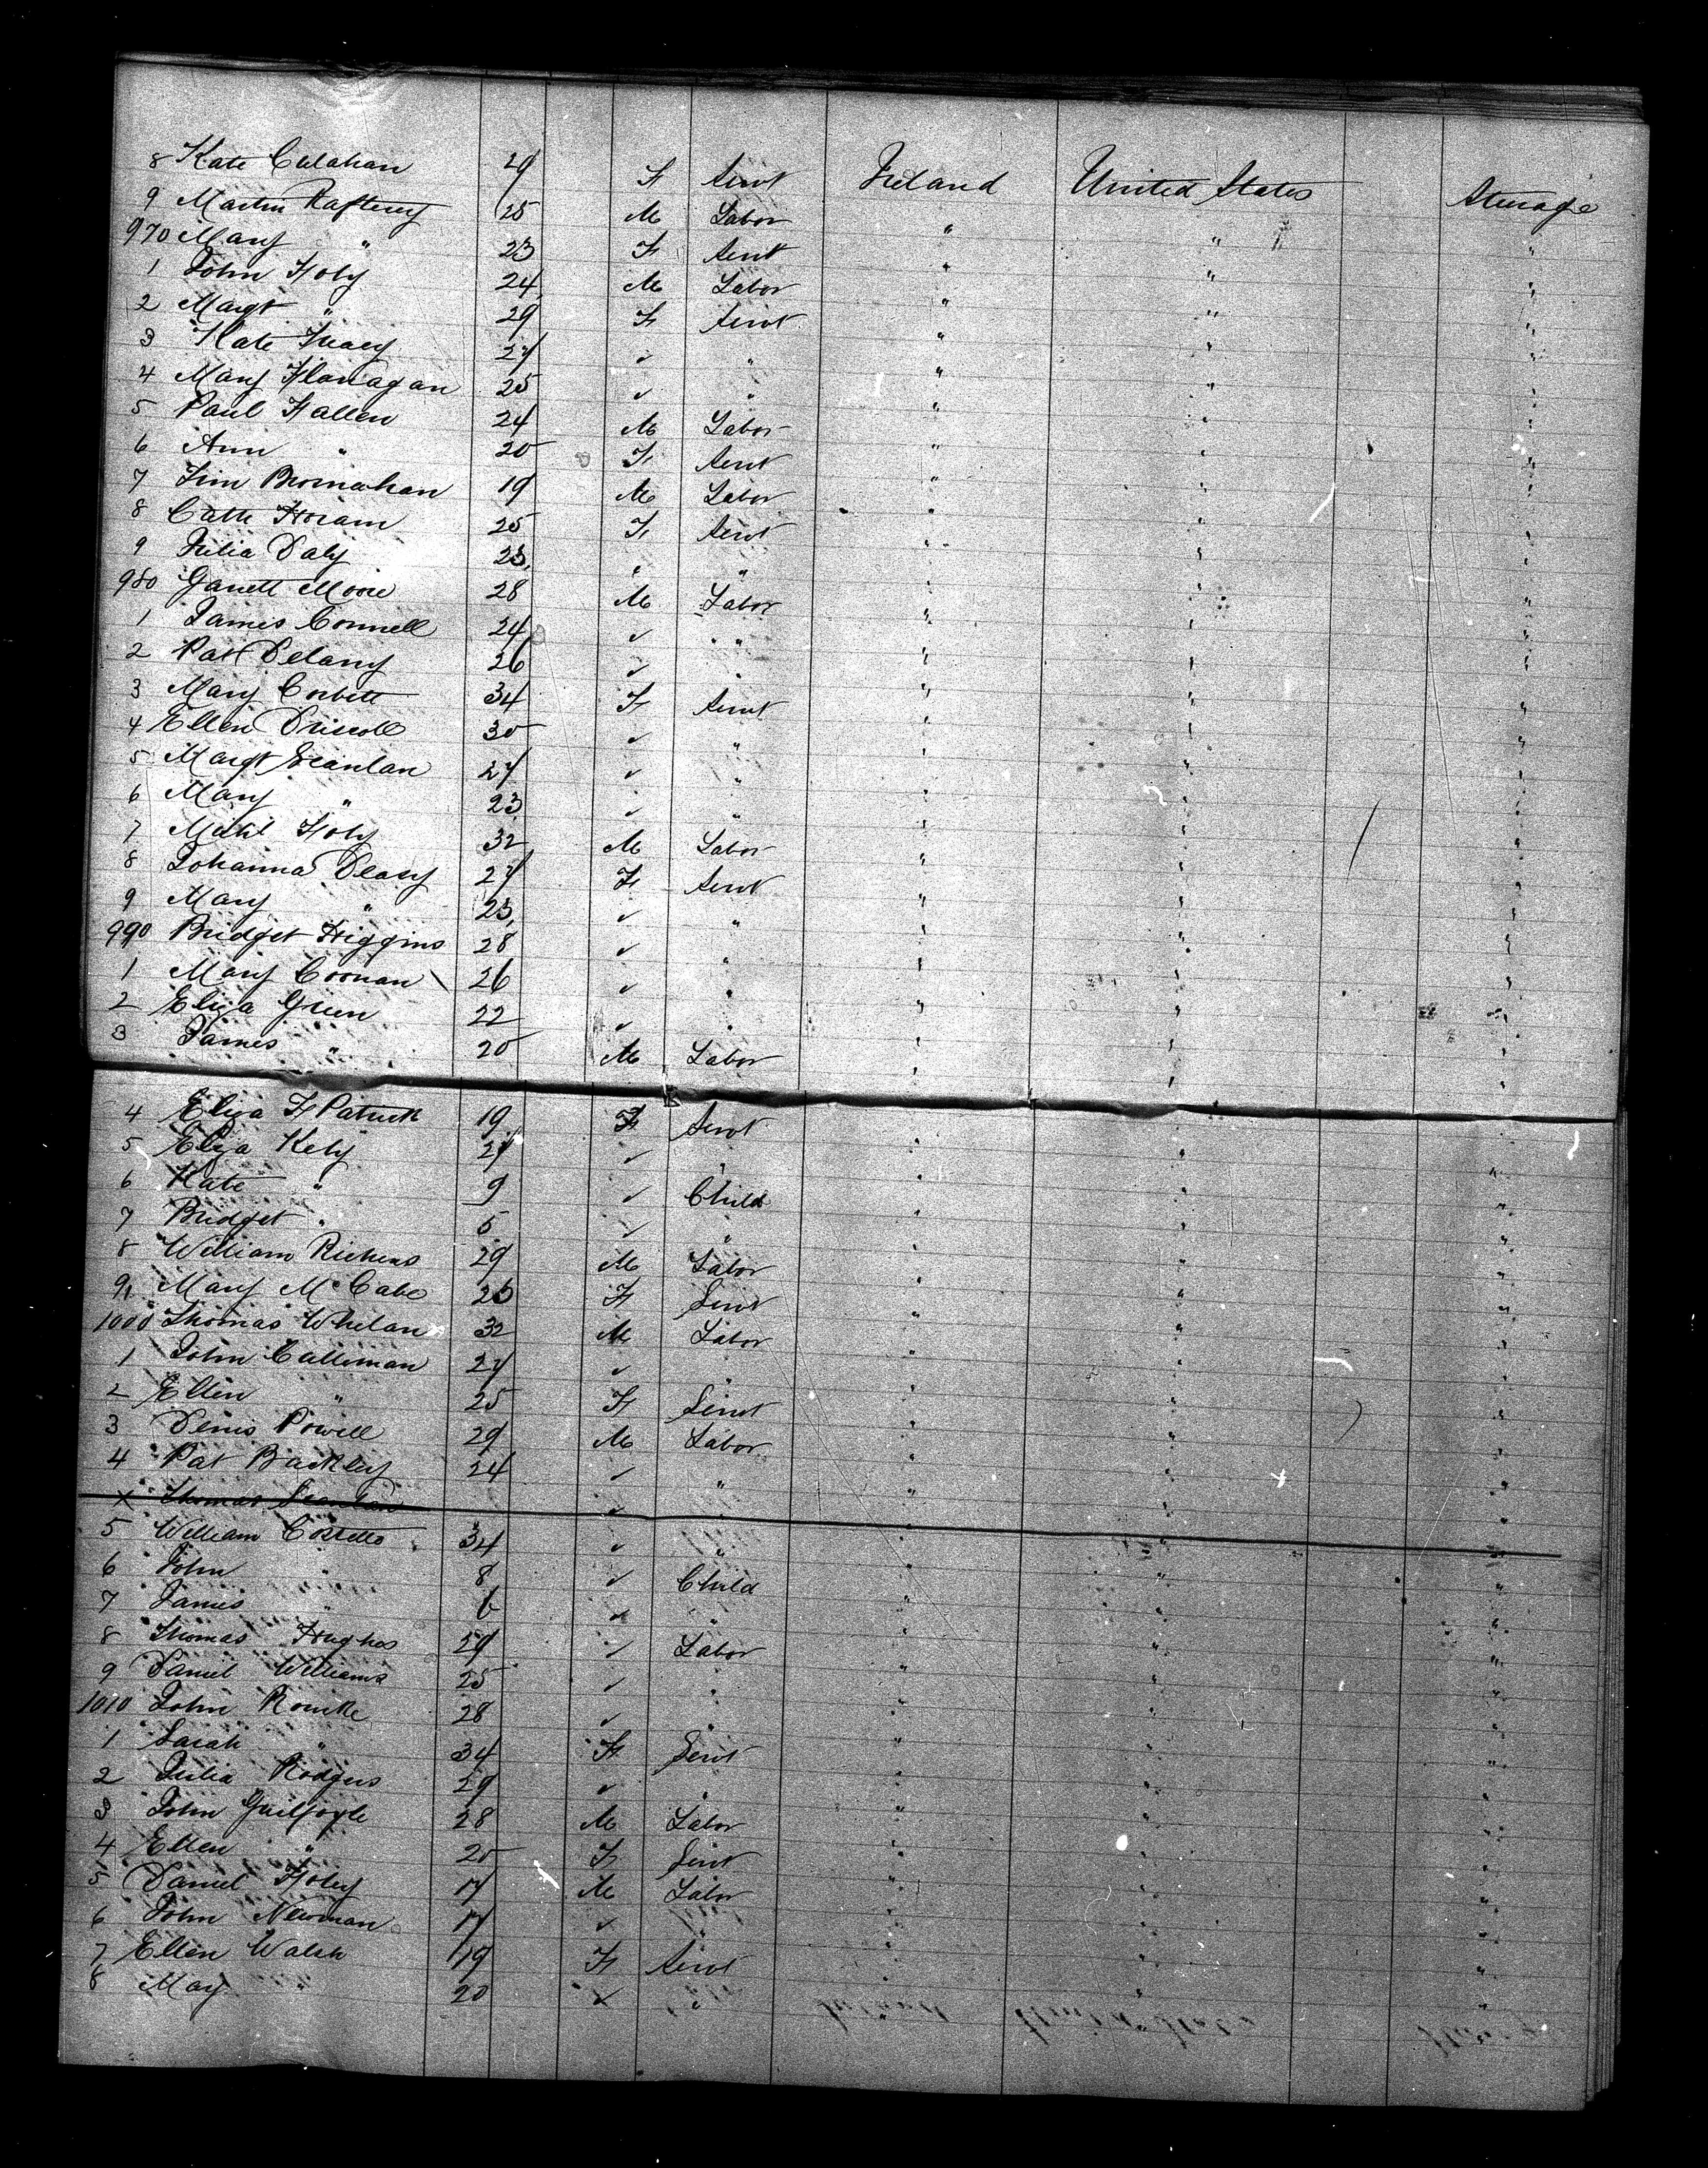 8 Kate Calahan 29 F Servt Ireland United States Steerage
9 Martin Raftery 25 M Labor " " "
970 Mary " 23 F Servt " " "
1 John Foly 24 M Labor " " "
2 Margt " 29 F Servt " " "
3 Kate Tracy 27 " " " " "
4 Mary Flanagan 25 " " " " "
5 Paul Fallen 24 M Labor " " "
6 Ann " 20 F Servt " " "
7 Tim Brosnahan 19 M Labor " " "
8 Cath Horam 25 F Servt " " "
9 Julia Daly 23 " " " " "
980 Garrett Moore 28 M Labor " " "
1 James Connell 24 " " " " "
2 Pat Delany 26 " " " " "
3 Mary Corbett 34 F Servt " " "
4 Ellen Driscoll 30 " " " " "
5 Margt Scanlan 27 " " " " "
6 Mary " 23 " " " " "
7 Michl Foly 32 M Labor " " "
8 Johanna Deasy 27 F Servt " " "
9 Mary " 23 " " " " "
990 Bridget Higgins 28 " " " " "
1 Mary Coonan 26 " " " " "
2 Eliza Green 22 " " " " "
3 James " 20 M Labor " " "
4 Eliza F Patrick 19 F Servt " " "
5 Eliza Kely 27 " " " " "
6 Kate " 9 " Child " " "
7 Bridget " 5 " " " " "
8 William Rickens 29 M Labor " " "
9 Mary McCabe 23 F Servt " " "
1000 Thomas Whelan 32 M Labor " " "
1 John Calliman 27 " " " " "
2 Ellen " 25 F Servt " " "
3 Denis Powell 29 M Labor " " "
4 Pat Buckley 24 " " " " "
x Thomas Scanlan " " " " "
5 William Costello 34 " " " " "
6 John " 8 " Child " " "
7 James " 6 " " " " "
8 Thomas Hughes 29 " Labor " " "
9 Daniel Williams 25 " " " " "
1010 John Rourke 28 " " " " "
1 Sarah " 34 F Servt " " "
2 Julia Rodgers 29 " " " " "
3 John Guilfoyle 28 M Labor " " "
4 Ellen " 20 F Servt " " "
5 Daniel Foley 17 M Labor " " "
6 John Newman 17 " " " " "
7 Ellen Walsh 19 F Servt " " "
8 Mary " 20 " " " " "